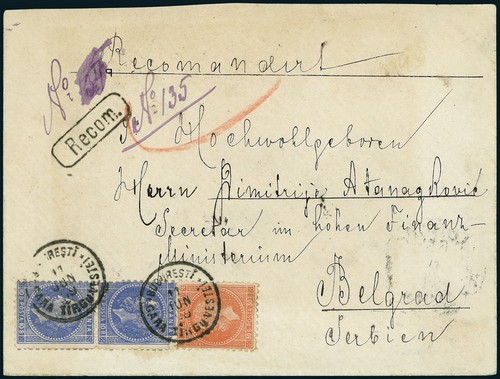 Recomandirt
No
No 135
Recom.
Sr Hochwollgeboren
Herrn Dimitrije Atanagković
Secretär im hohen Finanz-
Ministerium
Belgrad
Serbien
BUCURESTI
17
JUN
GARA TIRGUVESTEI
BUCURESTI
JUN
GARA TIRGUVESTEI